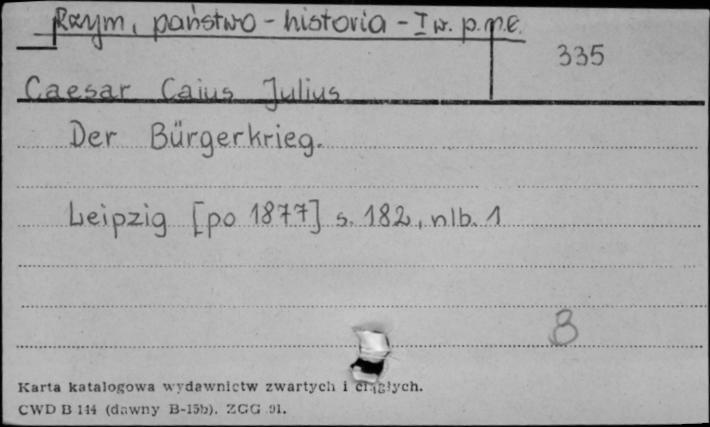 Rzym, państwo - historia - I w. p.n.e.
335
Caesar Caius Julius
Der Bürgerkrieg.
Leipzig [po 1877] s. 182, nlb. 1
B
Karta katalogowa wydawnictw zwartych i ciągłych.
CWD B 144 (dawny B-15b). ZGG 91.